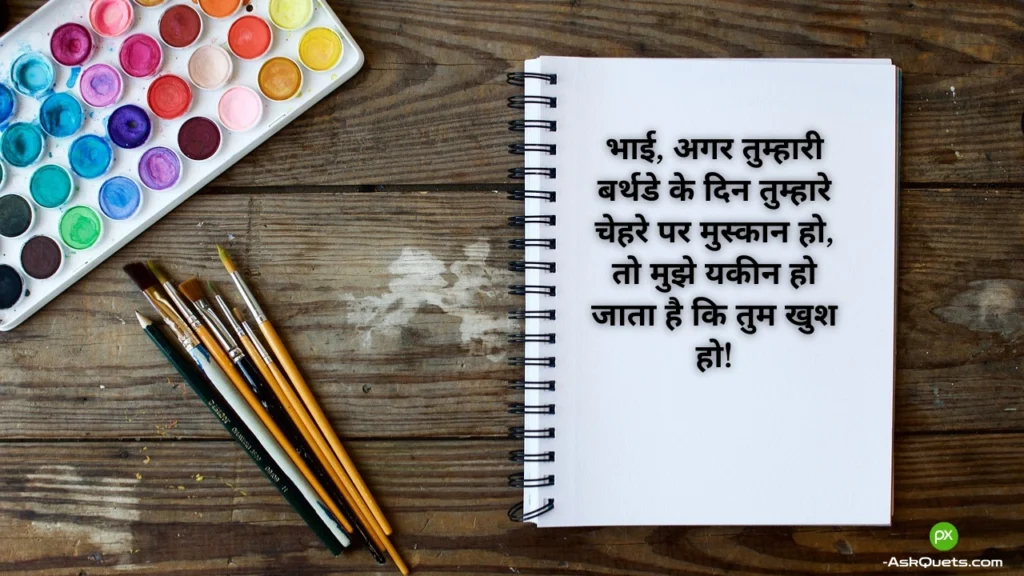 भाई, अगर तुम्हारी
बर्थडे के दिन तुम्हारे
चेहरे पर मुस्कान हो,
तो मुझे यकीन हो
जाता है कि तुम खुश
हो!
px
-AskQuets.com